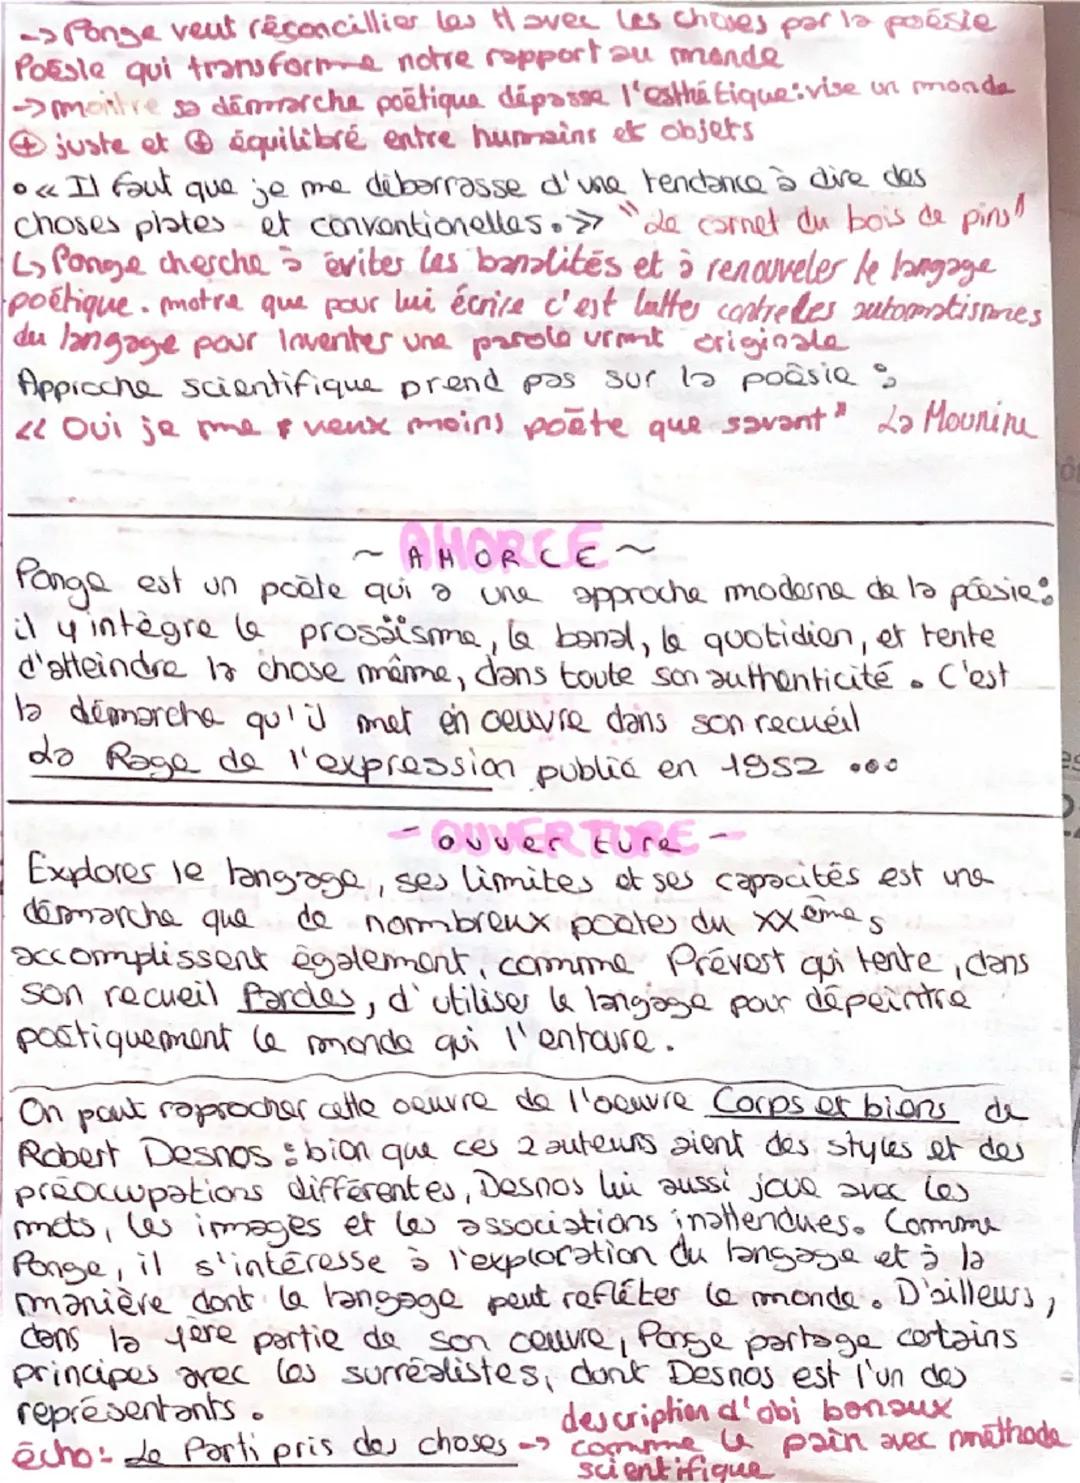 -> Ponge veut réconcillier les H avec les choses par la poésie
Poésie qui transforme notre rapport au monde
-> montre sa démarche poétique dépasse l'esthétique : vise un monde
⊕ juste et ⊕ équilibré entre humains et objets
• « Il faut que je me débarrasse d'une tendance à dire des
choses plates et conventionelles. » "Le carnet du bois de pins"
↳ Ponge cherche à éviter les banalités et à renouveler le langage
poétique. motre que pour lui écrire c'est lutter contre les automatismes
du langage pour inventer une parole vrmt originale
Approche scientifique prend pas sur la poésie :
« Oui je me veux moins poète que savant" La Mounine
~ AMORCE ~
Ponge est un poète qui a une approche moderne de la poésie :
il y intègre le prosaïsme, le banal, le quotidien, et tente
d'atteindre la chose même, dans toute son authenticité. C'est
la démarche qu'il met en oeuvre dans son recueil
La Rage de l'expression publié en 1952 ...
- ouverture -
Explorer le langage, ses limites et ses capacités est une
démarche que de nombreux poètes du XXème s
accomplissent également, comme Prévert qui tente, dans
son recueil Paroles, d'utiliser le langage pour dépeintre
poétiquement le monde qui l'entoure.
On peut raprocher cette oeuvre de l'oeuvre Corps et biens de
Robert Desnos : bien que ces 2 auteurs aient des styles et des
préoccupations différentes, Desnos lui aussi joue avec les
mots, les images et les associations inattendues. Comme
Ponge, il s'intéresse à l'exploration du langage et à la
manière dont le langage peut refléter le monde. D'ailleurs,
dans la 1ère partie de son oeuvre, Ponge partage certains
principes avec les surréalistes, dont Desnos est l'un des
représentants.
écho : Le Parti pris des choses -> description d'obj banaux
comme le pain avec méthode
scientifique